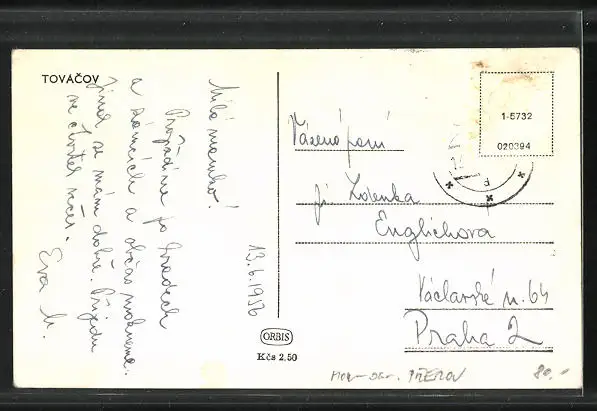 TOVAČOV
13.6.1956
Milá maminko!
Projíždíme po hradech
a zámcích a občas mokneme.
Jinak se mám dobře. Přijedu
ve čtvrtek večer.
Eva M.
ORBIS
Kčs 2,50
1-5732
020394
Vážená paní
Zdenka
Englichová
Václavská n. 64
Praha 2
PŘEROV
80,-